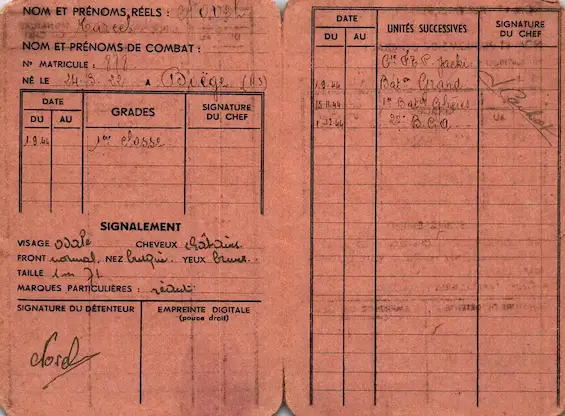 NOM ET PRÉNOMS RÉELS : Nord
Marcel
NOM ET PRÉNOMS DE COMBAT :
No MATRICULE : 818
NÉ LE 24-3-22 A Diège (H.S)
DATE
GRADES
SIGNATURE DU CHEF
DU AU
1.9.44 1ère classe
SIGNALEMENT
VISAGE ovale CHEVEUX châtains
FRONT normal, NEZ busqué YEUX bruns
TAILLE 1m 71
MARQUES PARTICULIÈRES : néant
SIGNATURE DU DÉTENTEUR
EMPREINTE DIGITALE
(pouce droit)
Nord
DATE
UNITÉS SUCCESSIVES
SIGNATURE DU CHEF
DU AU
Cie F.T.P. Jacki
1.9.44 Bat on Grand
15.11.44 1er Bat on Glières
1.12.44 27e B.C.A